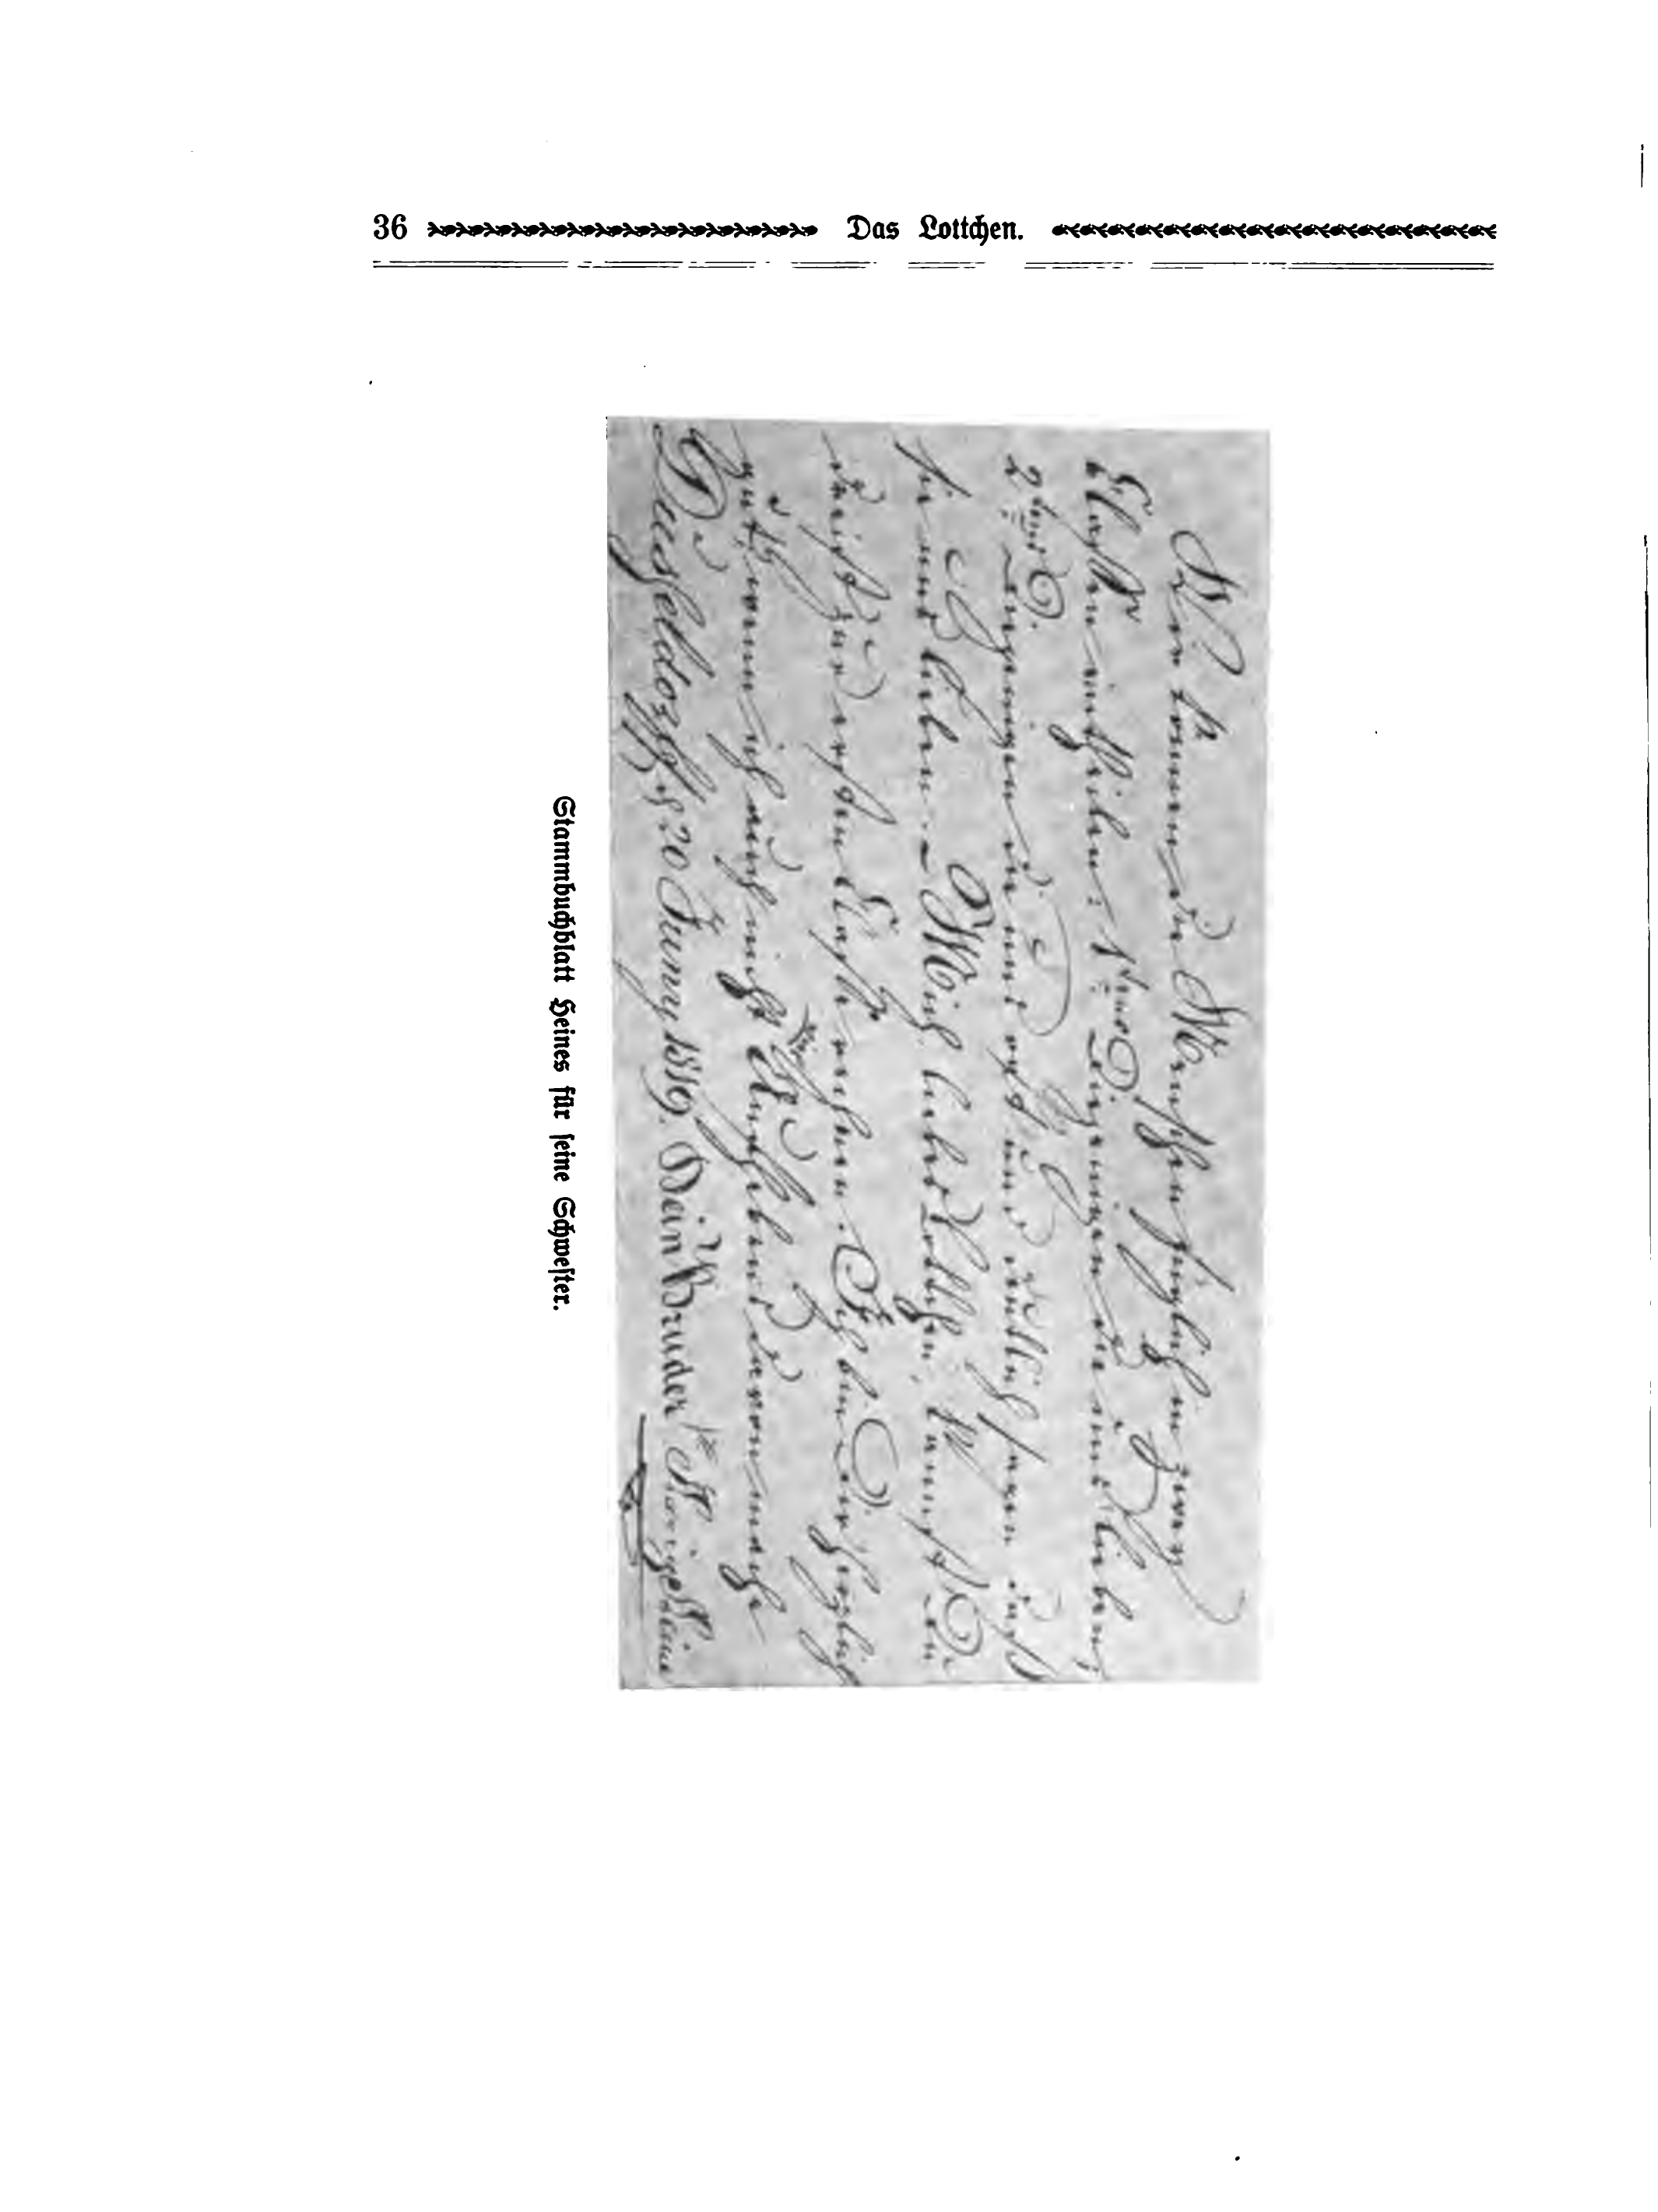 36 Das Lottchen.
Wir können die Menschen füglich in zwey
Classen eintheilen: 1tens Diejenigen die uns lieben;
2tens Diejenigen die uns oft und deutlich sagen daß
sie uns lieben. — Mich liebes Lottchen, kannst Du
dreist zur ersten Classe rechnen. Ich bin Dir herzlich
gut, wenn ich auch nicht Aufhebens davon mache
Düsseldorff 20 Juny 1819. Dein Bruder Heine
Stammbuchblatt Heines für seine Schwester.